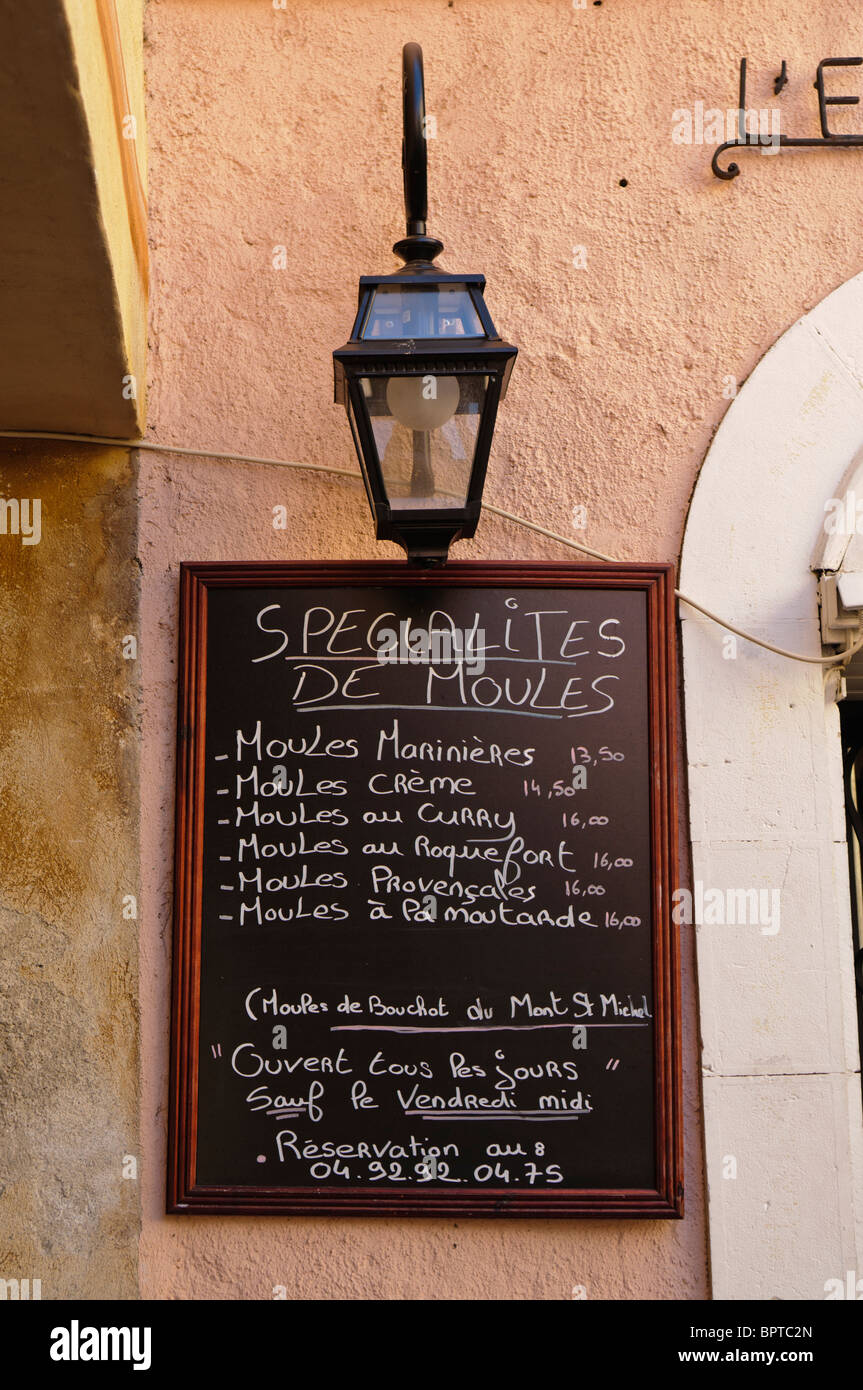 L'E
SPECIALITES
DE MOULES
- MOULES MARINIÈRES 13,50
- MOULES CRÈME 14,50
- MOULES au CURRY 16,00
- MOULES au Roquefort 16,00
- MOULES PROVENÇALES 16,00
- MOULES à la moutarde 16,00
(Moules de Bouchot du Mont St Michel
" OUVERT tous les jours "
Sauf le Vendredi midi
. Réservation au :
04.92.92.04.75
alamy
Image ID: BPTC2N
www.alamy.com